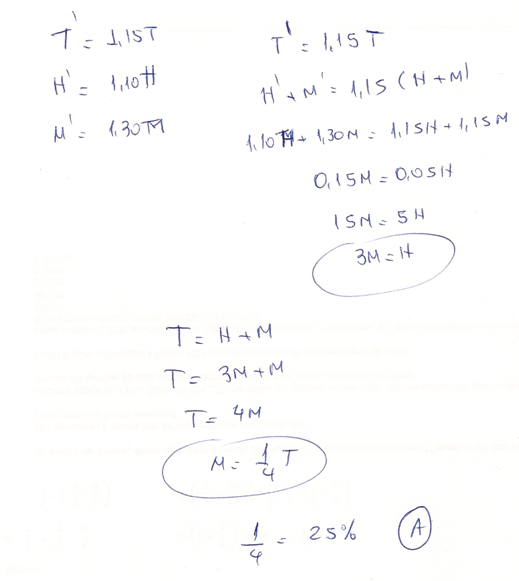 T' = 1,15T
H' = 1,10H
M' = 1,30M
T' = 1,15T
H' + M' = 1,15 (H + M)
1,10H + 1,30M = 1,15H + 1,15M
0,15M = 0,05H
15M = 5H
3M = H
T = H + M
T = 3M + M
T = 4M
M = 1/4 T
1/4 = 25% A